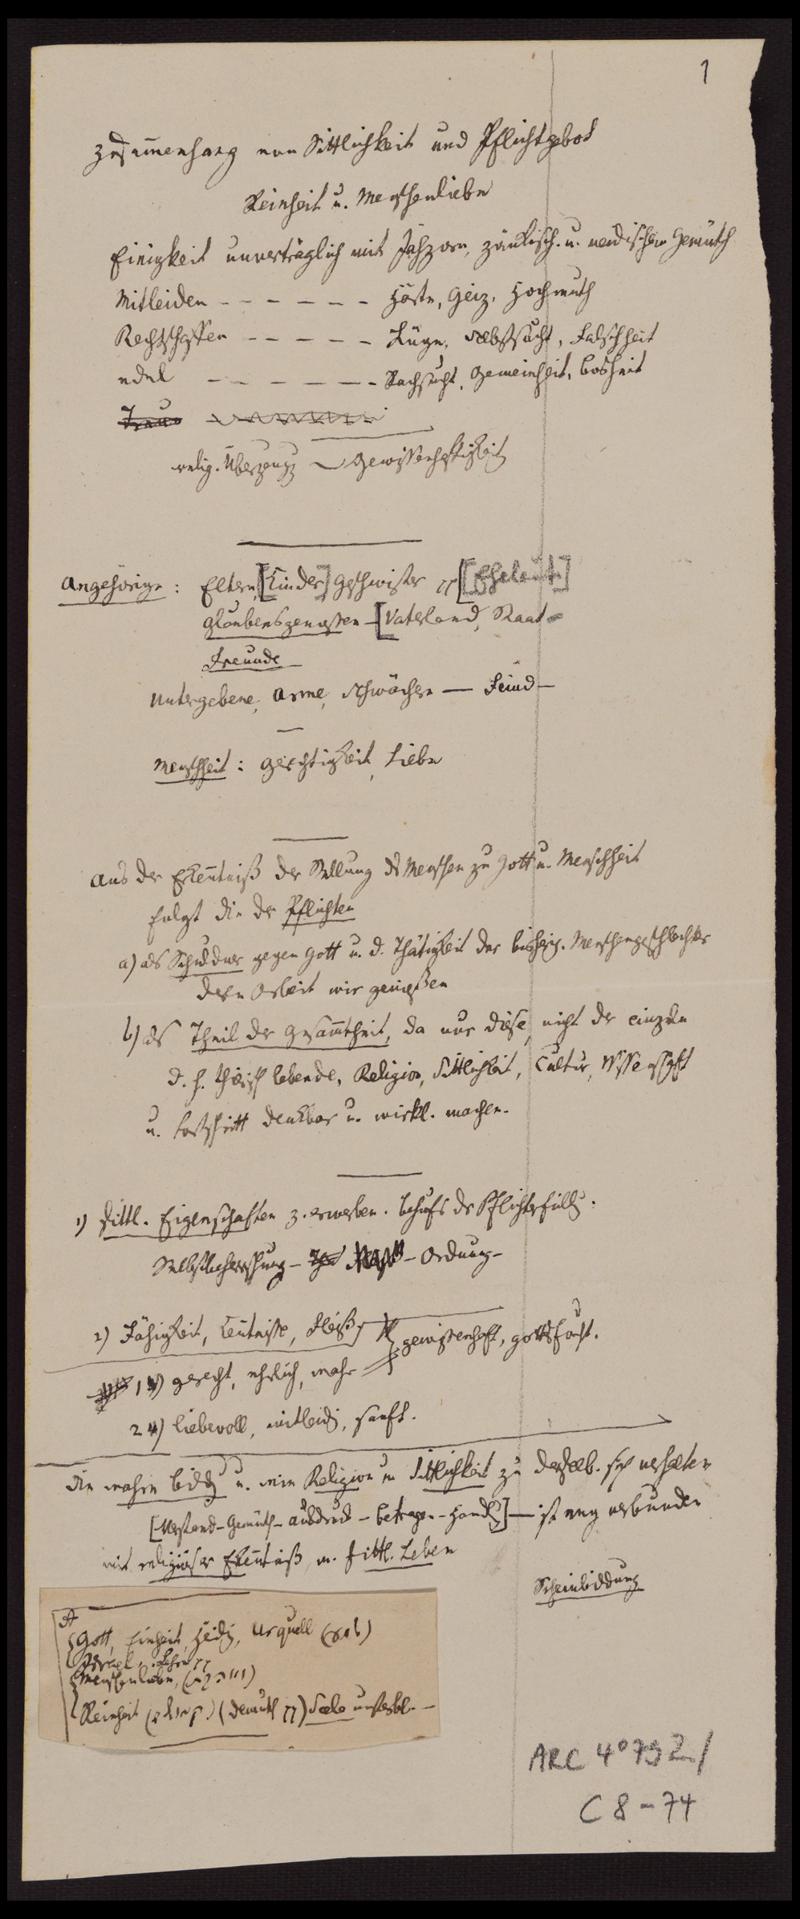 1
Zusam̄enhang von Sittlichkeit und Pflichtgebot
Reinheit u. Menschenliebe
Einigkeit unverträglich mit Jähzorn, zänkisch. u. neidischem Gemüth
Mitleiden - - - - - - Härte, Geiz, Hochmuth
Rechtschaffen - - - - - Lüge, Selbstsucht, Falschheit
edel - - - - - - Rachsucht, Gemeinheit, Bosheit
Treue
relig. Überzeug — Gewissenhaftigkeit
Angehörige: Eltern, [Kinder] Geschwister [Eheleute]
Glaubensgenossen - [Vaterland, Staat -
Freunde -
Untergebene, Arme, Schwächere — Feind -
Menschheit: Gerechtigkeit, Liebe
Aus der Erken̄tniß der Stellung des Menschen zu Gott u. Menschheit
folgt die der Pflichten
a) als Schuldner gegen Gott u. d. Thätigkeit des bisherig. Menschengeschlechtes
deren Arbeit wir genießen
b) als Theil der Gesam̄theit, da nur diese, nicht der einzeln
d. h. thierisch lebende, Religion, Sittlichkeit, Cultur, Wissenschaft
u. Fortschritt denkbar u. wirkl. machen.
1) Sittl. Eigenschaften z. erwerben. behufs der Pflichterfüll.
Selbstbeherrschung - - Ordnung -
2) Fähigkeit, Ken̄tnisse, Fleiß
gewissenhaft, gottesfürcht.
1) gerecht, ehrlich, wahr
2) liebevoll, mitleidig, sanft.
die wahre Bildg u. Religion u Sittlichkeit zu derselb. sich verhalten
[Verstand - Gemüth - Ausdruck - Betragen - Handl] — ist eng verbunden
mit religiöser Erken̄tniß u. sittl. Leben
Scheinbildung
A
Gott, Einheit, Heilig, Urquell
Israel, Lehre
Menschenliebe,
Reinheit (Demuth) Seele unsterbl. -
ARC 4° 792/
C 8 - 74